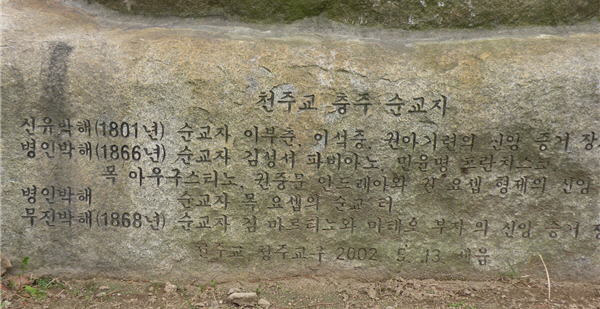 천주교 충주 순교자
신유박해(1801년) 순교자 이부춘, 이석중, 권아기련의 신앙 증거
병인박해(1866년) 순교자 김성서 파비아노, 민윤명 프란치스코
목 아우구스티노, 권중문 안드레아와 권 요셉 형제의 신앙
병인박해 순교자 목 요셉의 순교 터
무진박해(1868년) 순교자 김 마르티노와 마태오 부자의 신앙 증거
천주교 청주교구 2002. 5. 13. 세움